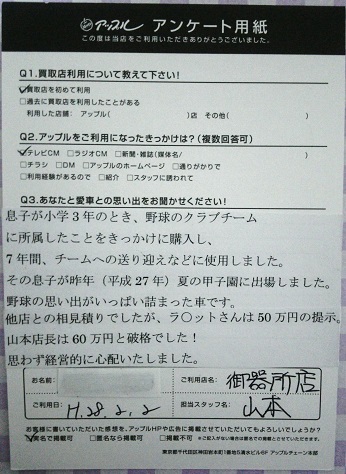 アップル アンケート用紙
この度は当店をご利用いただきありがとうございました。
Q1.買取店利用について教えて下さい!
☑買取店を初めて利用
□過去に買取店を利用したことがある
利用した店舗: アップル( )店 その他( )
Q2.アップルをご利用になったきっかけは?(複数回答可)
☑テレビCM □ラジオCM □新聞・雑誌(媒体名/ )
□チラシ □DM □アップルのホームページ □通りがかりで
□利用経験があるので □紹介 □スタッフに誘われて
Q3.あなたと愛車との思い出をお聞かせください!
息子が小学3年のとき、野球のクラブチーム
に所属したことをきっかけに購入し、
7年間、チームへの送り迎えなどに使用しました。
その息子が昨年(平成27年)夏の甲子園に出場しました。
野球の思い出がいっぱい詰まった車です。
他店との相見積りでしたが、ラ〇ットさんは50万円の提示。
山本店長は60万円と破格でした!
思わず経営的に心配いたしました。
お名前: ご利用店名: 御器所店
ご利用日: H.28.2.2 担当スタッフ名: 山本
お客様に書いていただいた感想を、アップルHPや広告に掲載させていただいてもよろしいでしょうか?
☑実名で掲載可 □匿名なら掲載可 □掲載不可 ※ご記入がない場合は匿名での掲載可と致します。
東京都千代田区神田岩本町1番地5清水ビル6F アップルチェーン本部